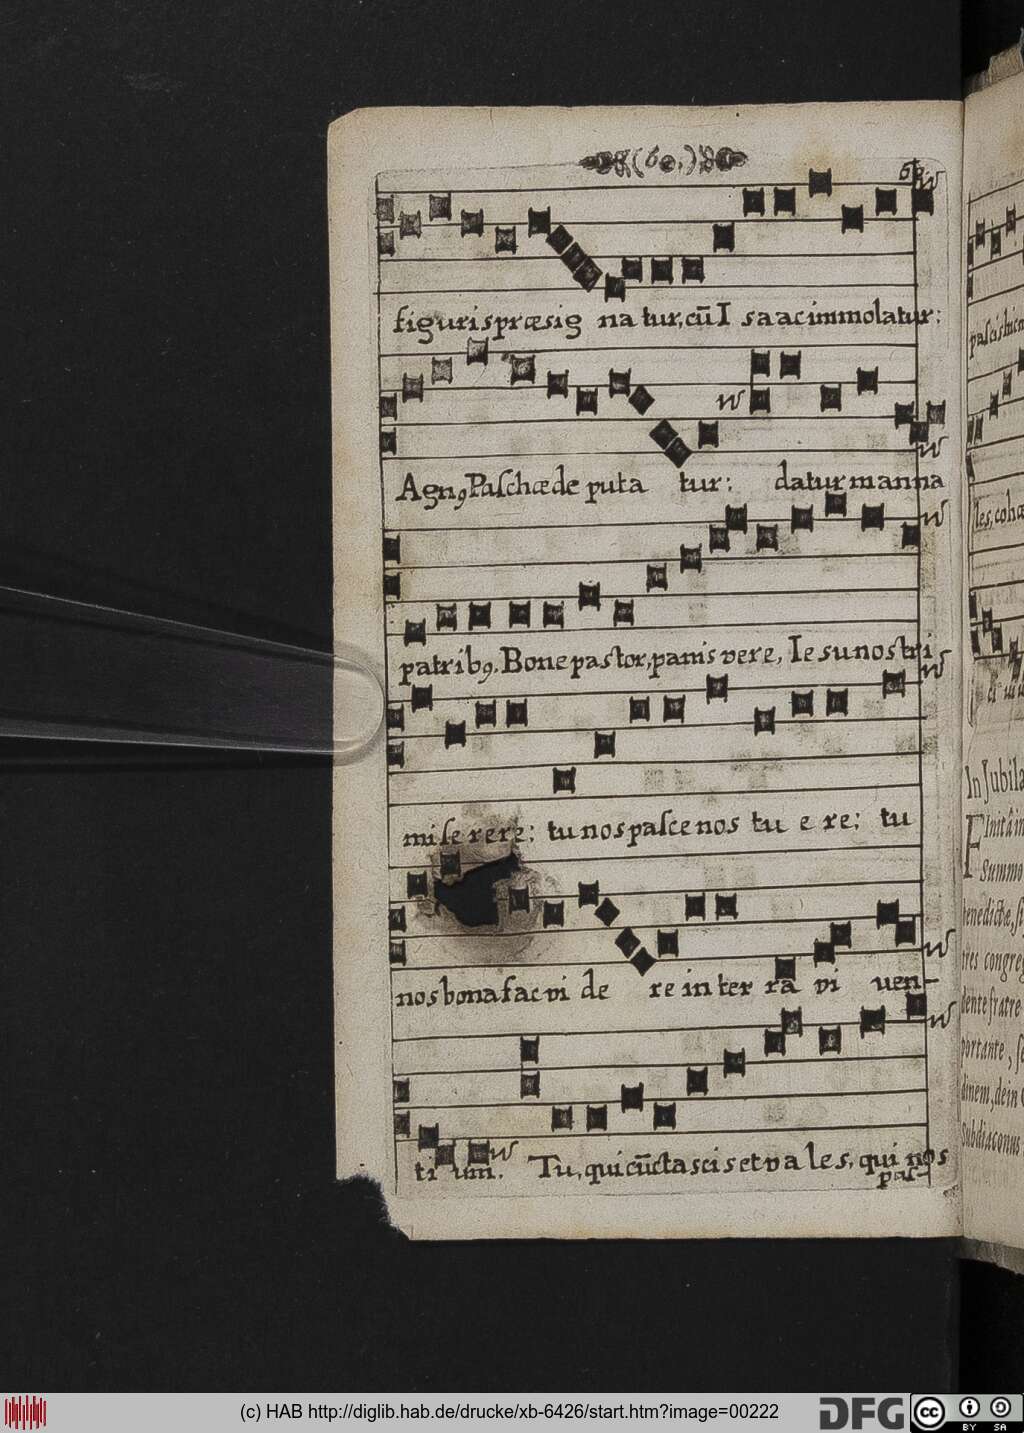 (60.)
figuris præsig na tur, cū I sa ac immolatur:
Agnꝰ Paſchæ de puta tur: datur manna
patribꝰ. Bone pastor, panis vere, Iesu nostri
miſe rere; tu nos paſce nos tu e re; tu
nos bona fac vi de re in ter ra vi uen-
ti um. Tu, qui cūcta scis et va les, qui nos
pas-
paſcis hic
les, cohæ
In Jubila
Finitâ in
Summo
benedictæ, ſi
tres congreg
dente fratre
portante, ſc
dinem, dein
Subdiaconus
(c) HAB http://diglib.hab.de/drucke/xb-6426/start.htm?image=00222
DFG
cc
BY SA